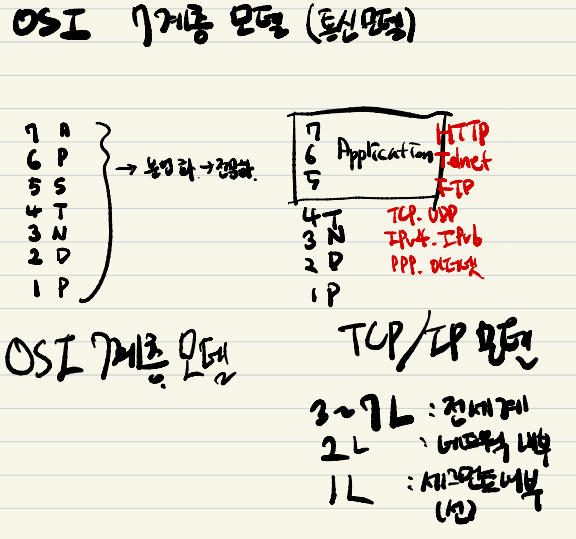 OSI 7계층 모델 (통신모델)
7 A
6 P
5 S
4 T
3 N
2 D
1 P
→ 분업화. → 전문화.
7
6 Application
5
HTTP
Telnet
FTP
4 T TCP. UDP
3 N IPv4. IPv6
2 D PPP. 이더넷
1 P
OSI 7계층 모델
TCP/IP 모델
3~7L : 전세계
2L : 네트워크 내부
1L : 세그먼트 내부
(선)